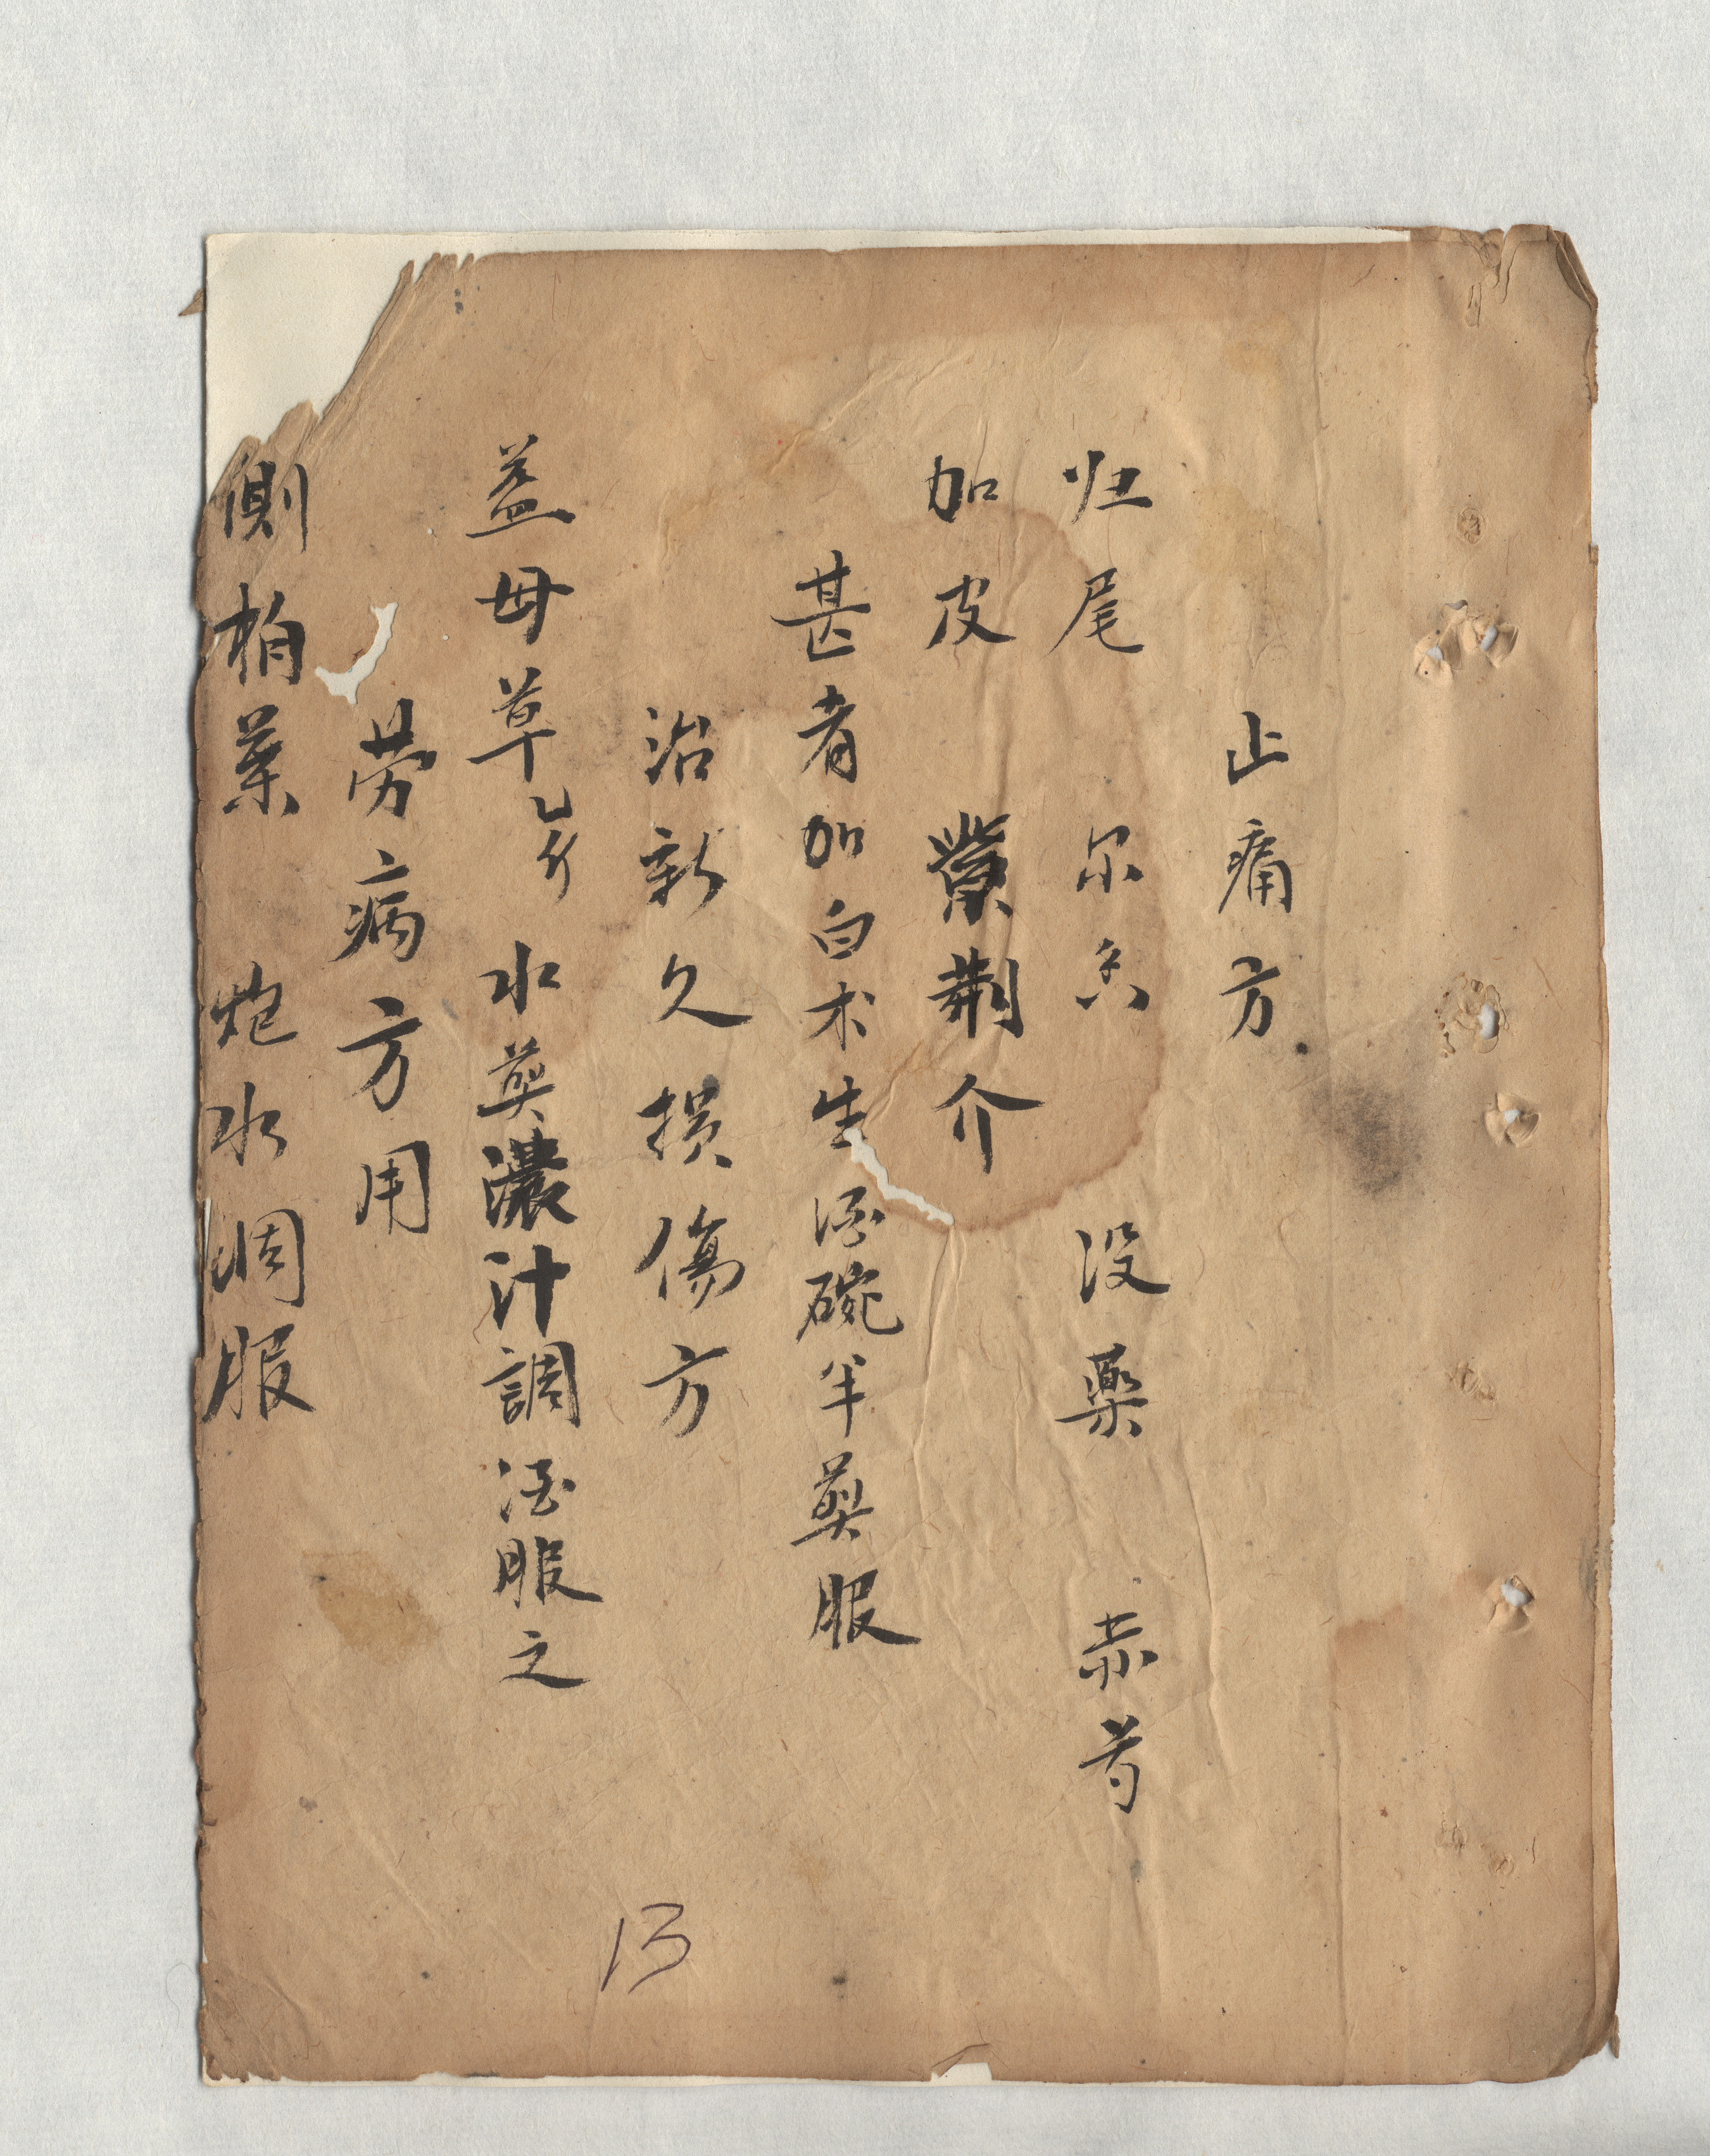 止痛方
归尾 尔香 没藥 赤芍
加皮 紫荆介
甚者加白术生 酒碗半煎服
治新久损傷方
益母草乙斤 水煎濃汁調酒服之
劳病方用
側柏葉 炮水調服
13